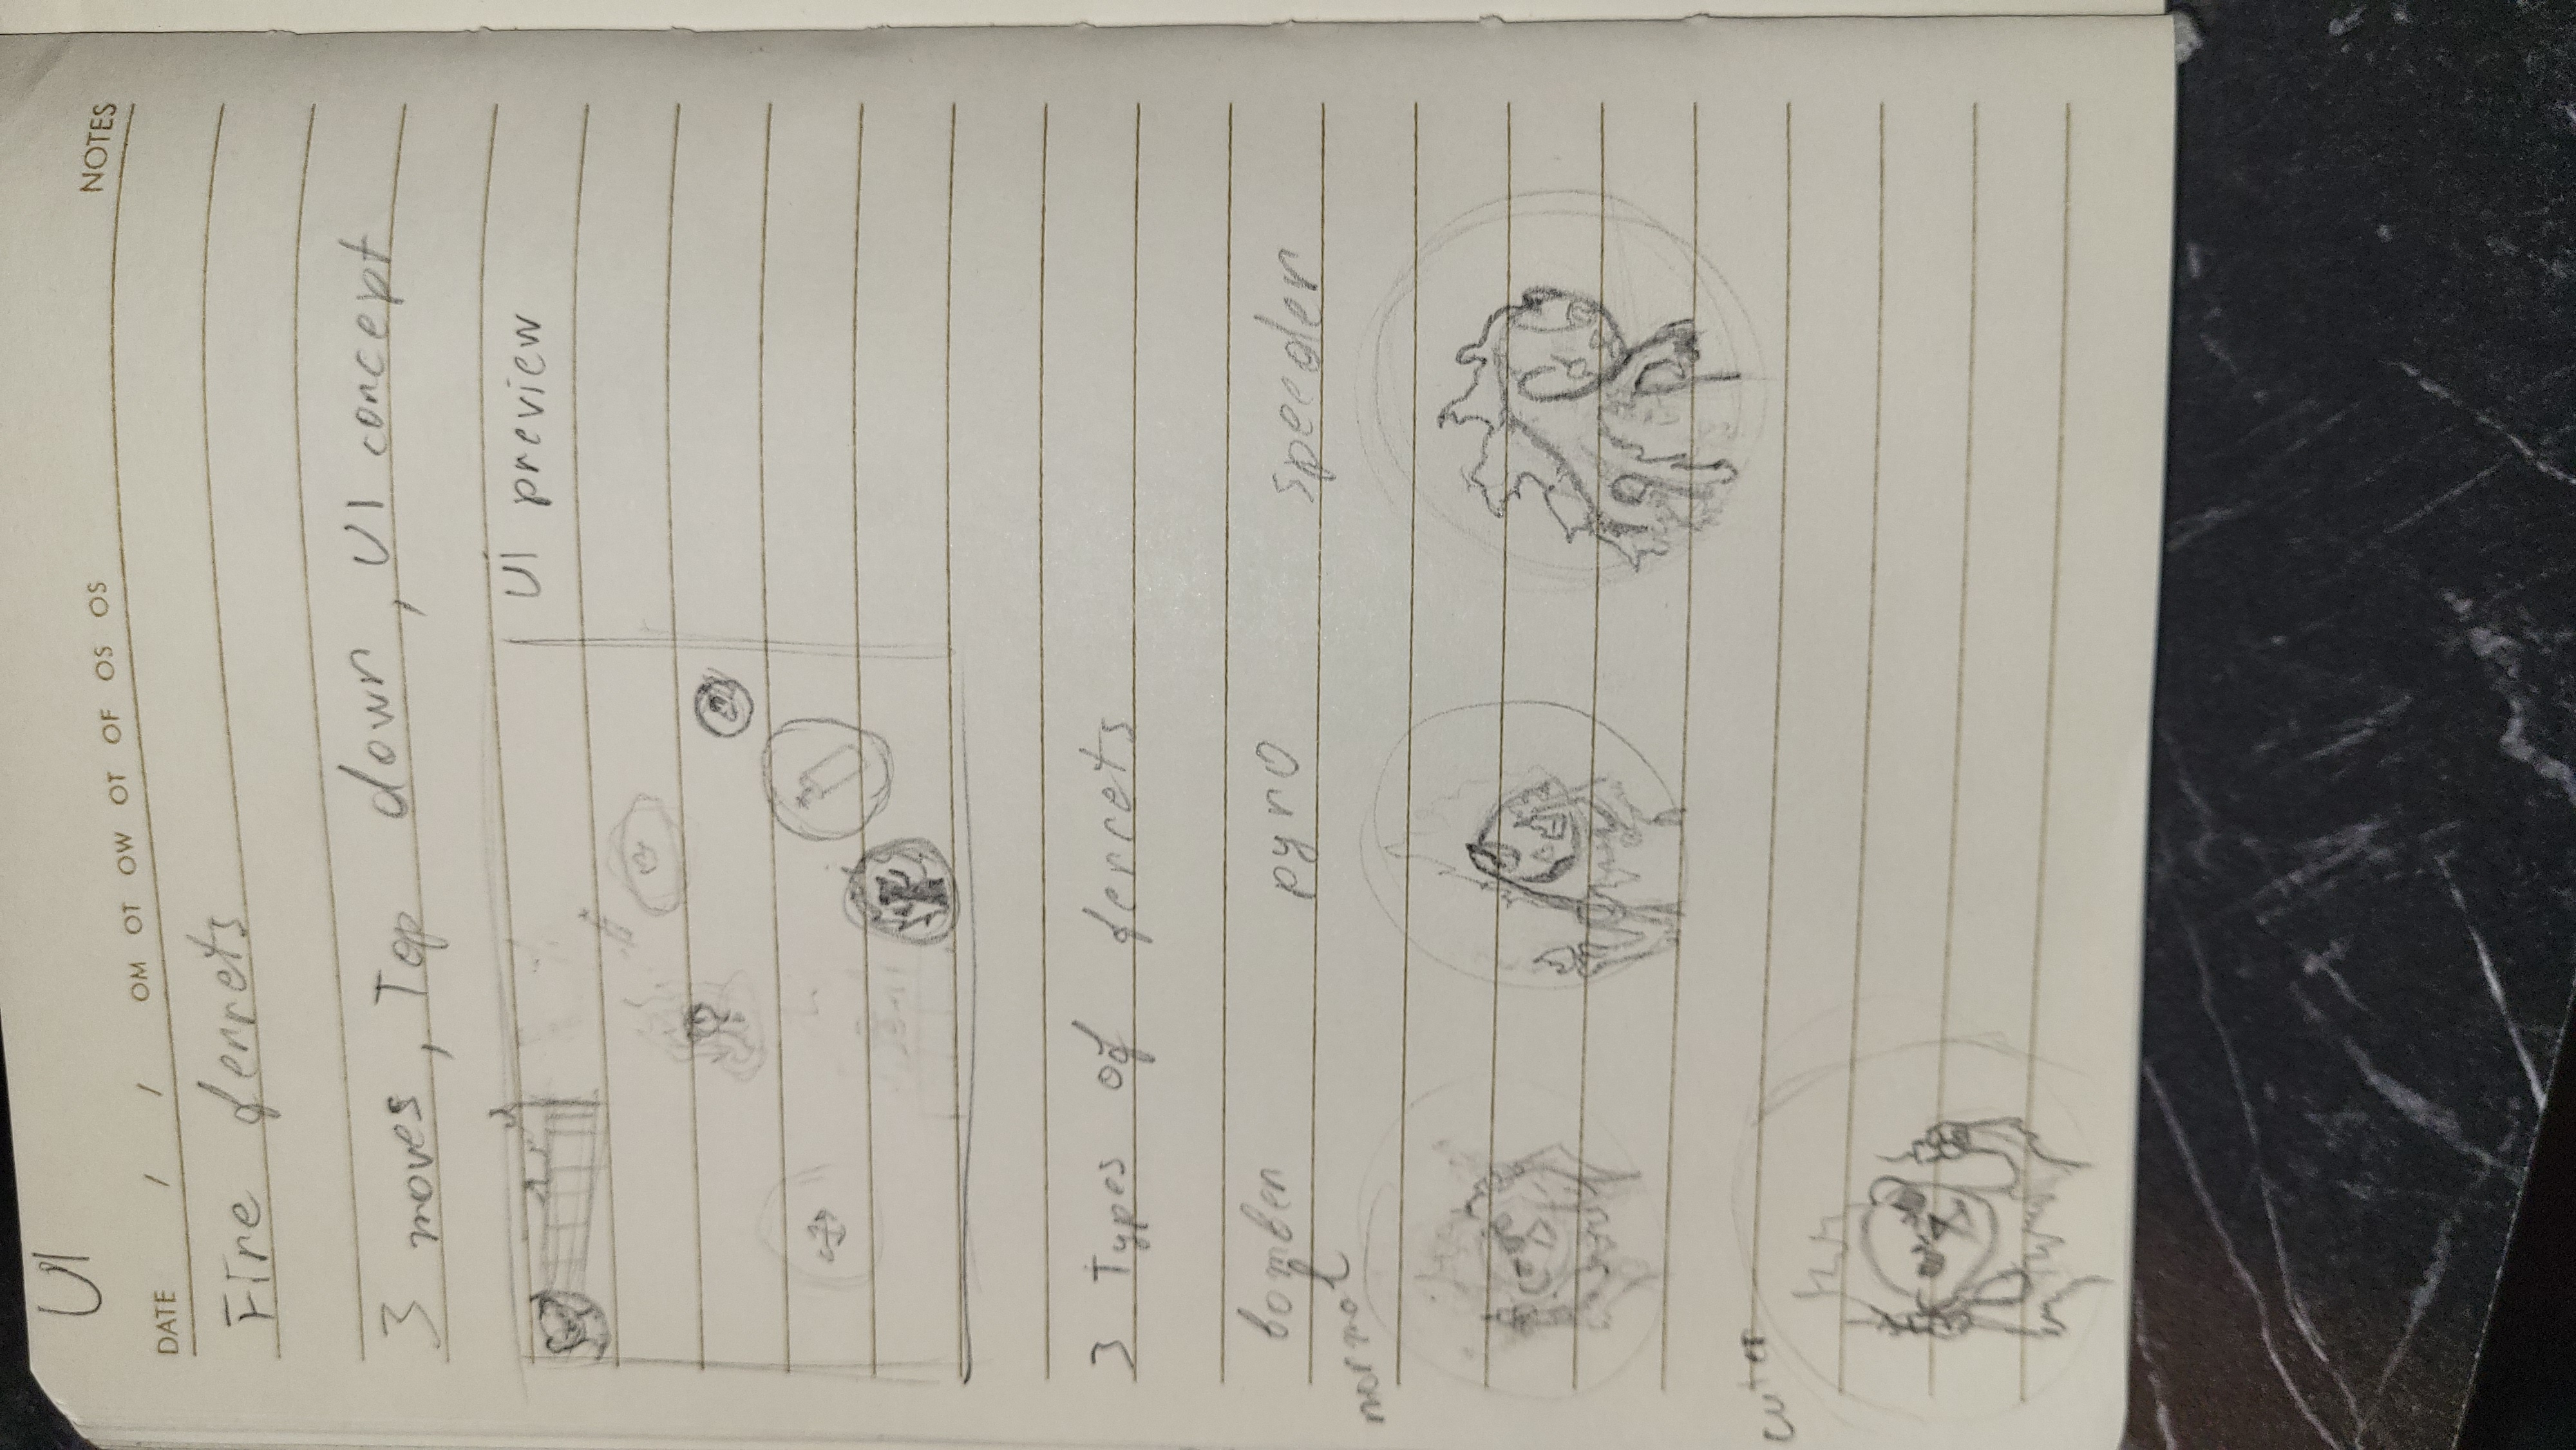 UI
NOTES
DATE / / OM OT OW OT OF OS OS
Fire ferrets
3 moves, Top down, UI concept
UI preview
3 Types of ferrets
bomber pyro speeder
normal
cuter